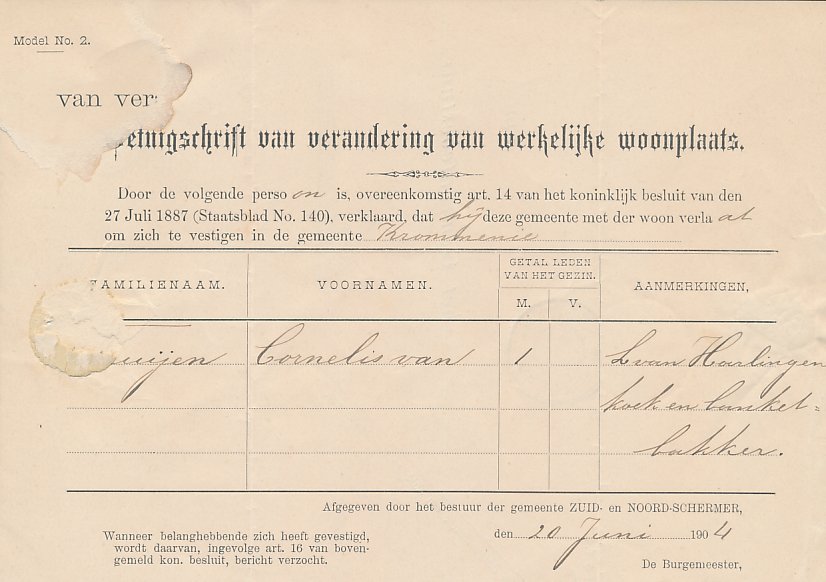 Model No. 2.
van ver
etuigschrift van verandering van werkelijke woonplaats.
Door de volgende perso on is, overeenkomstig art. 14 van het koninklijk besluit van den
27 Juli 1887 (Staatsblad No. 140), verklaard, dat hij deze gemeente met der woon verla at
om zich te vestigen in de gemeente Krommenie
FAMILIENAAM. VOORNAMEN. GETAL LEDEN VAN HET GEZIN. M. V. AANMERKINGEN,
uijen Cornelis van 1 L van Harlingen
koek en banket=
bakker.
Afgegeven door het bestuur der gemeente ZUID- en NOORD-SCHERMER,
den 20 Juni 1904
Wanneer belanghebbende zich heeft gevestigd,
wordt daarvan, ingevolge art. 16 van boven-
gemeld kon. besluit, bericht verzocht.
De Burgemeester,